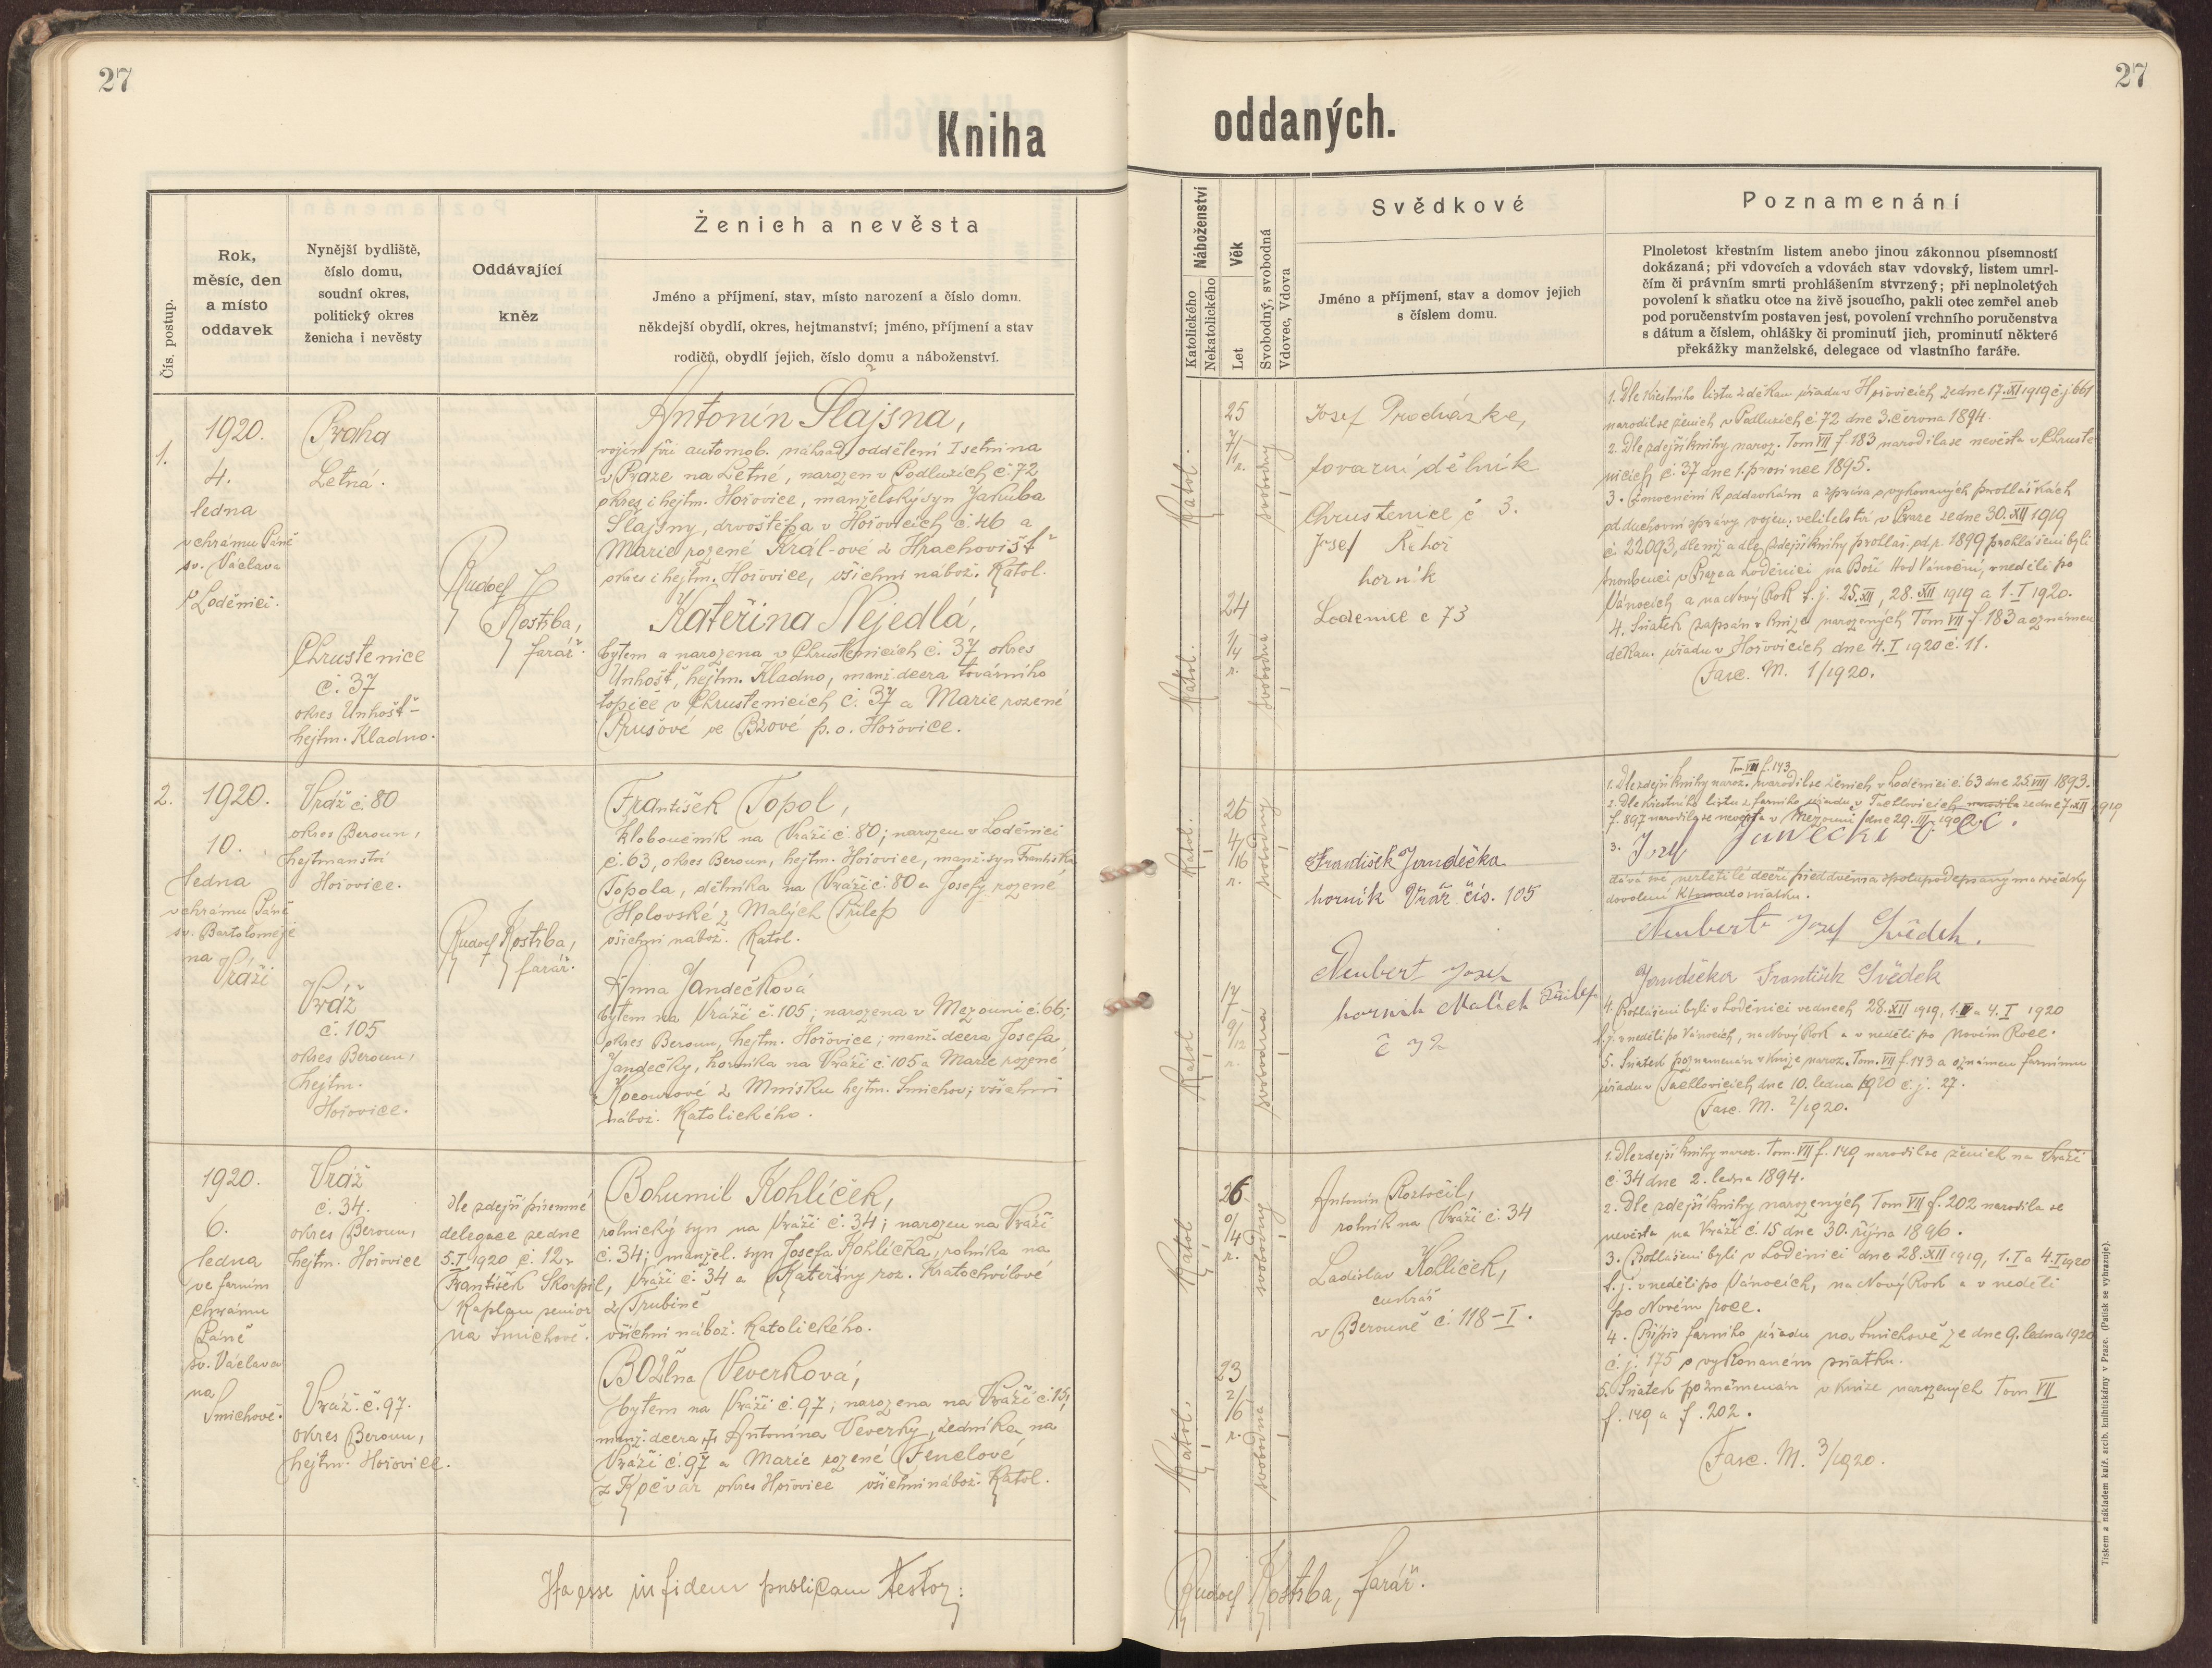 27
27
Kniha
oddaných.
Čís. postup.
Rok,
měsíc, den
a místo
oddavek
Nynější bydliště,
číslo domu,
soudní okres,
politický okres
ženicha i nevěsty
Oddávající
kněz
Ženich a nevěsta
Jméno a příjmení, stav, místo narození a číslo domu.
někdejší obydlí, okres, hejtmanství; jméno, příjmení a stav
rodičů, obydlí jejich, číslo domu a náboženství.
Náboženství
Katolického
Nekatolického
Věk
Let
Svobodný, svobodná
Vdovec, Vdova
Svědkové
Jméno a příjmení, stav a domov jejich
s číslem domu.
Poznamenání
Plnoletost křestním listem anebo jinou zákonnou písemností
dokázaná; při vdovcích a vdovách stav vdovský, listem umrl-
čím či právním smrti prohlášením stvrzený; při neplnoletých
povolení k sňatku otce na živě jsoucího, pakli otec zemřel aneb
pod poručenstvím postaven jest, povolení vrchního poručenstva
s dátum a číslem, ohlášky či prominutí jich, prominutí některé
překážky manželské, delegace od vlastního faráře.
1.
1920.
4.
ledna
v chrámu Páně
sv. Václava
v Loděnici.
Praha
Letná.
Chrustenice
č. 37
okres Unhošť-
hejtm. Kladno.
Rudolf
Kostrba,
farář.
Antonín Slajsna,
vojín při automob. náhrad. oddělení I setnina
v Praze na Letné, narozen v Podluzích č 72
okres i hejtm. Hořovice, manželský syn Jakuba
Slajsny, drvoštěpa v Hořovicích č. 46 a
Marie rozené Král-ové z Hrachovišť
okres i hejtm. Hořovice, všichni nábož. Katol.
Kateřina Nejedlá,
bytem a narozena v Chrustenicích č. 37 okres
Unhošť, hejtm. Kladno, manž. dcera továrního
topiče v Chrustenicích č. 37 a Marie rozené
Průšové ze Bzové p. o. Hořovice.
Katol.
25
7/1
r.
svobodný
Katol.
24
1/4
r.
svobodná
Josef Procházka,
tovarní dělník
Chrustenice č 3.
Josef Řehoř
horník
Lodenice č 73
1. Dle křestního listu z děkan. úřadu v Hořovicích ze dne 17.XI 1919 č.j. 661
narodil se ženich v Podluzích č 72 dne 3. června 1894.
2. Dle zdejší knihy naroz. Tom VII f. 183 narodila se nevěsta v Chruste
nicích č. 37 dne 1. prosince 1895.
3. Zmocnění k oddavkám a zpráva o vykonaných prohláškách
od duchovní správy vojen. velitelství v Praze ze dne 30. XII 1919
č. 22093, dle níž a dle zdejší knihy prohláš. od r. 1899 prohlášeni byli
snoubenci v Praze a Loděnici na Boží Hod Vánoční, v neděli po
Vánocích a na Nový Rok t. j. 25. XII, 28. XII 1919 a 1. I 1920.
4. Sňatek zapsán v knize narozených Tom VII f. 183 a oznámen
děkan. úřadu v Hořovicích dne 4. I 1920 č. 11.
Fasc. M. 1/1920.
2.
1920.
10.
ledna
v chrámu Páně
sv. Bartoloměje
na
Vráži
Vráž č. 80
okres Beroun,
hejtmanství
Hořovice.
Vráž
č. 105
okres Beroun,
hejtm.
Hořovice.
Rudolf Kostrba,
farář.
František Topol,
kloboučník na Vráži č. 80; narozen v Loděnici
č. 63, okres Beroun, hejtm. Hořovice, manž. syn Františka
Topola, dělníka na Vráži č. 80 a Josefy rozené
Holovské z Malých Přílep
všichni nábož. Katol.
Anna Jandečková
bytem na Vráži č. 105; narozena v Mezouni č. 66;
okres Beroun, hejtm. Hořovice; manž. dcera Josefa
Jandečky, horníka na Vráži č 105 a Marie rozené
Kocourové z Mníšku hejtm. Smíchov; všichni
nábož. Katolického.
Katol.
26
4/16
r.
svobodný
Katol
17
9/12
r.
svobodná
František Jandečka
horník Vráž čís. 105
Neubert Josef
horník Malích Přílep
č 32
Tom. VII f. 173
1. Dle zdejší knihy naroz. narodil se ženich v Loděnici č. 63 dne 25. VIII 1893.
2. Dle křestního listu z farního úřadu v Tachlovicích ze dne 7. XII 1919
f. 897 narodila se nevěsta v Mezouni dne 29. III. 1902.
3.
dává své nezletilé dceři před dvěma spolupodepsanými svědky
dovolení k sňatku.
Neubert Josef Svědek.
Jandečka František Svědek
4. Prohlášeni byli v Loděnici ve dnech 28. XII 1919, 1. I a 4. I 1920
t. j. v neděli po Vánocích, na Nový Rok a v neděli po Novém Roce.
5. Sňatek poznamenán v knize naroz. Tom. VII f. 173 a oznámen farnímu
úřadu v Tachlovicích dne 10. ledna 1920 č. j. 27.
Fasc. M. 2/1920.
1920.
6.
ledna
ve farním
chrámu
Páně
sv. Václava
na
Smíchově.
Vráž
č. 34.
okres Beroun,
hejtm. Hořovice
Vráž. č. 97.
okres Beroun,
hejtm. Hořovice.
dle zdejší písemné
delegace ze dne
5. I 1920 č. 12
František Skorpil,
Kaplan senior
na Smíchově.
Bohumil Kohlíček,
rolnický syn na Vráži č. 34; narozen na Vráži
č. 34; manžel. syn Josefa Kohlíčka, rolníka na
Vráži č. 34 a Kateřiny roz. Kratochvílové
z Trubině
všichni nábož. Katolického.
Božena Veverková,
bytem na Vráži č. 97; narozena na Vráži č. 15,
manž. dcera † Antonína Veverky, zedníka na
Vráži č. 97 a Marie rozené Fenclové
z Kočvar okres Hořovice všichni nábož. Katol.
Katol
26
0/4
r.
svobodný
Katol.
23
2/6
r.
svobodna
Antonín Roztočil,
rolník na Vráži č. 34
Ladislav Kohlíček,
cukrář
v Berouně č. 118-I.
1. Dle zdejší knihy naroz. Tom. VII f. 149 narodil se ženich na Vráži
č 34 dne 2. ledna 1894.
2. Dle zdejší knihy narozených Tom VII f. 202 narodila se
nevěsta na Vráži č. 15 dne 30. října 1896.
3. Prohlášeni byli v Loděnici dne 28. XII 1919, 1. I a 4. I 1920
t. j. v neděli po Vánocích, na Nový Rok a v neděli
po Novém roce.
4. Přípis farního úřadu na Smíchově ze dne 9. ledna 1920
č. j. 175 o vykonaném sňatku.
5. Sňatek poznamenán v knize narozených Tom VII
f. 149 a f. 202.
Fasc. M. 3/1920.
Ita esse in fidem publicam testor:
Rudolf Kostrba, farář.
Tiskem a nákladem kníž. arcib. knihtiskárny v Praze. (Patisk se vyhrazuje).